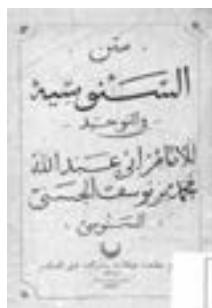 متن
السنوسية
في التوحيد
للإمام أبي عبد الله
محمد بن يوسف الحسني
السنوسي